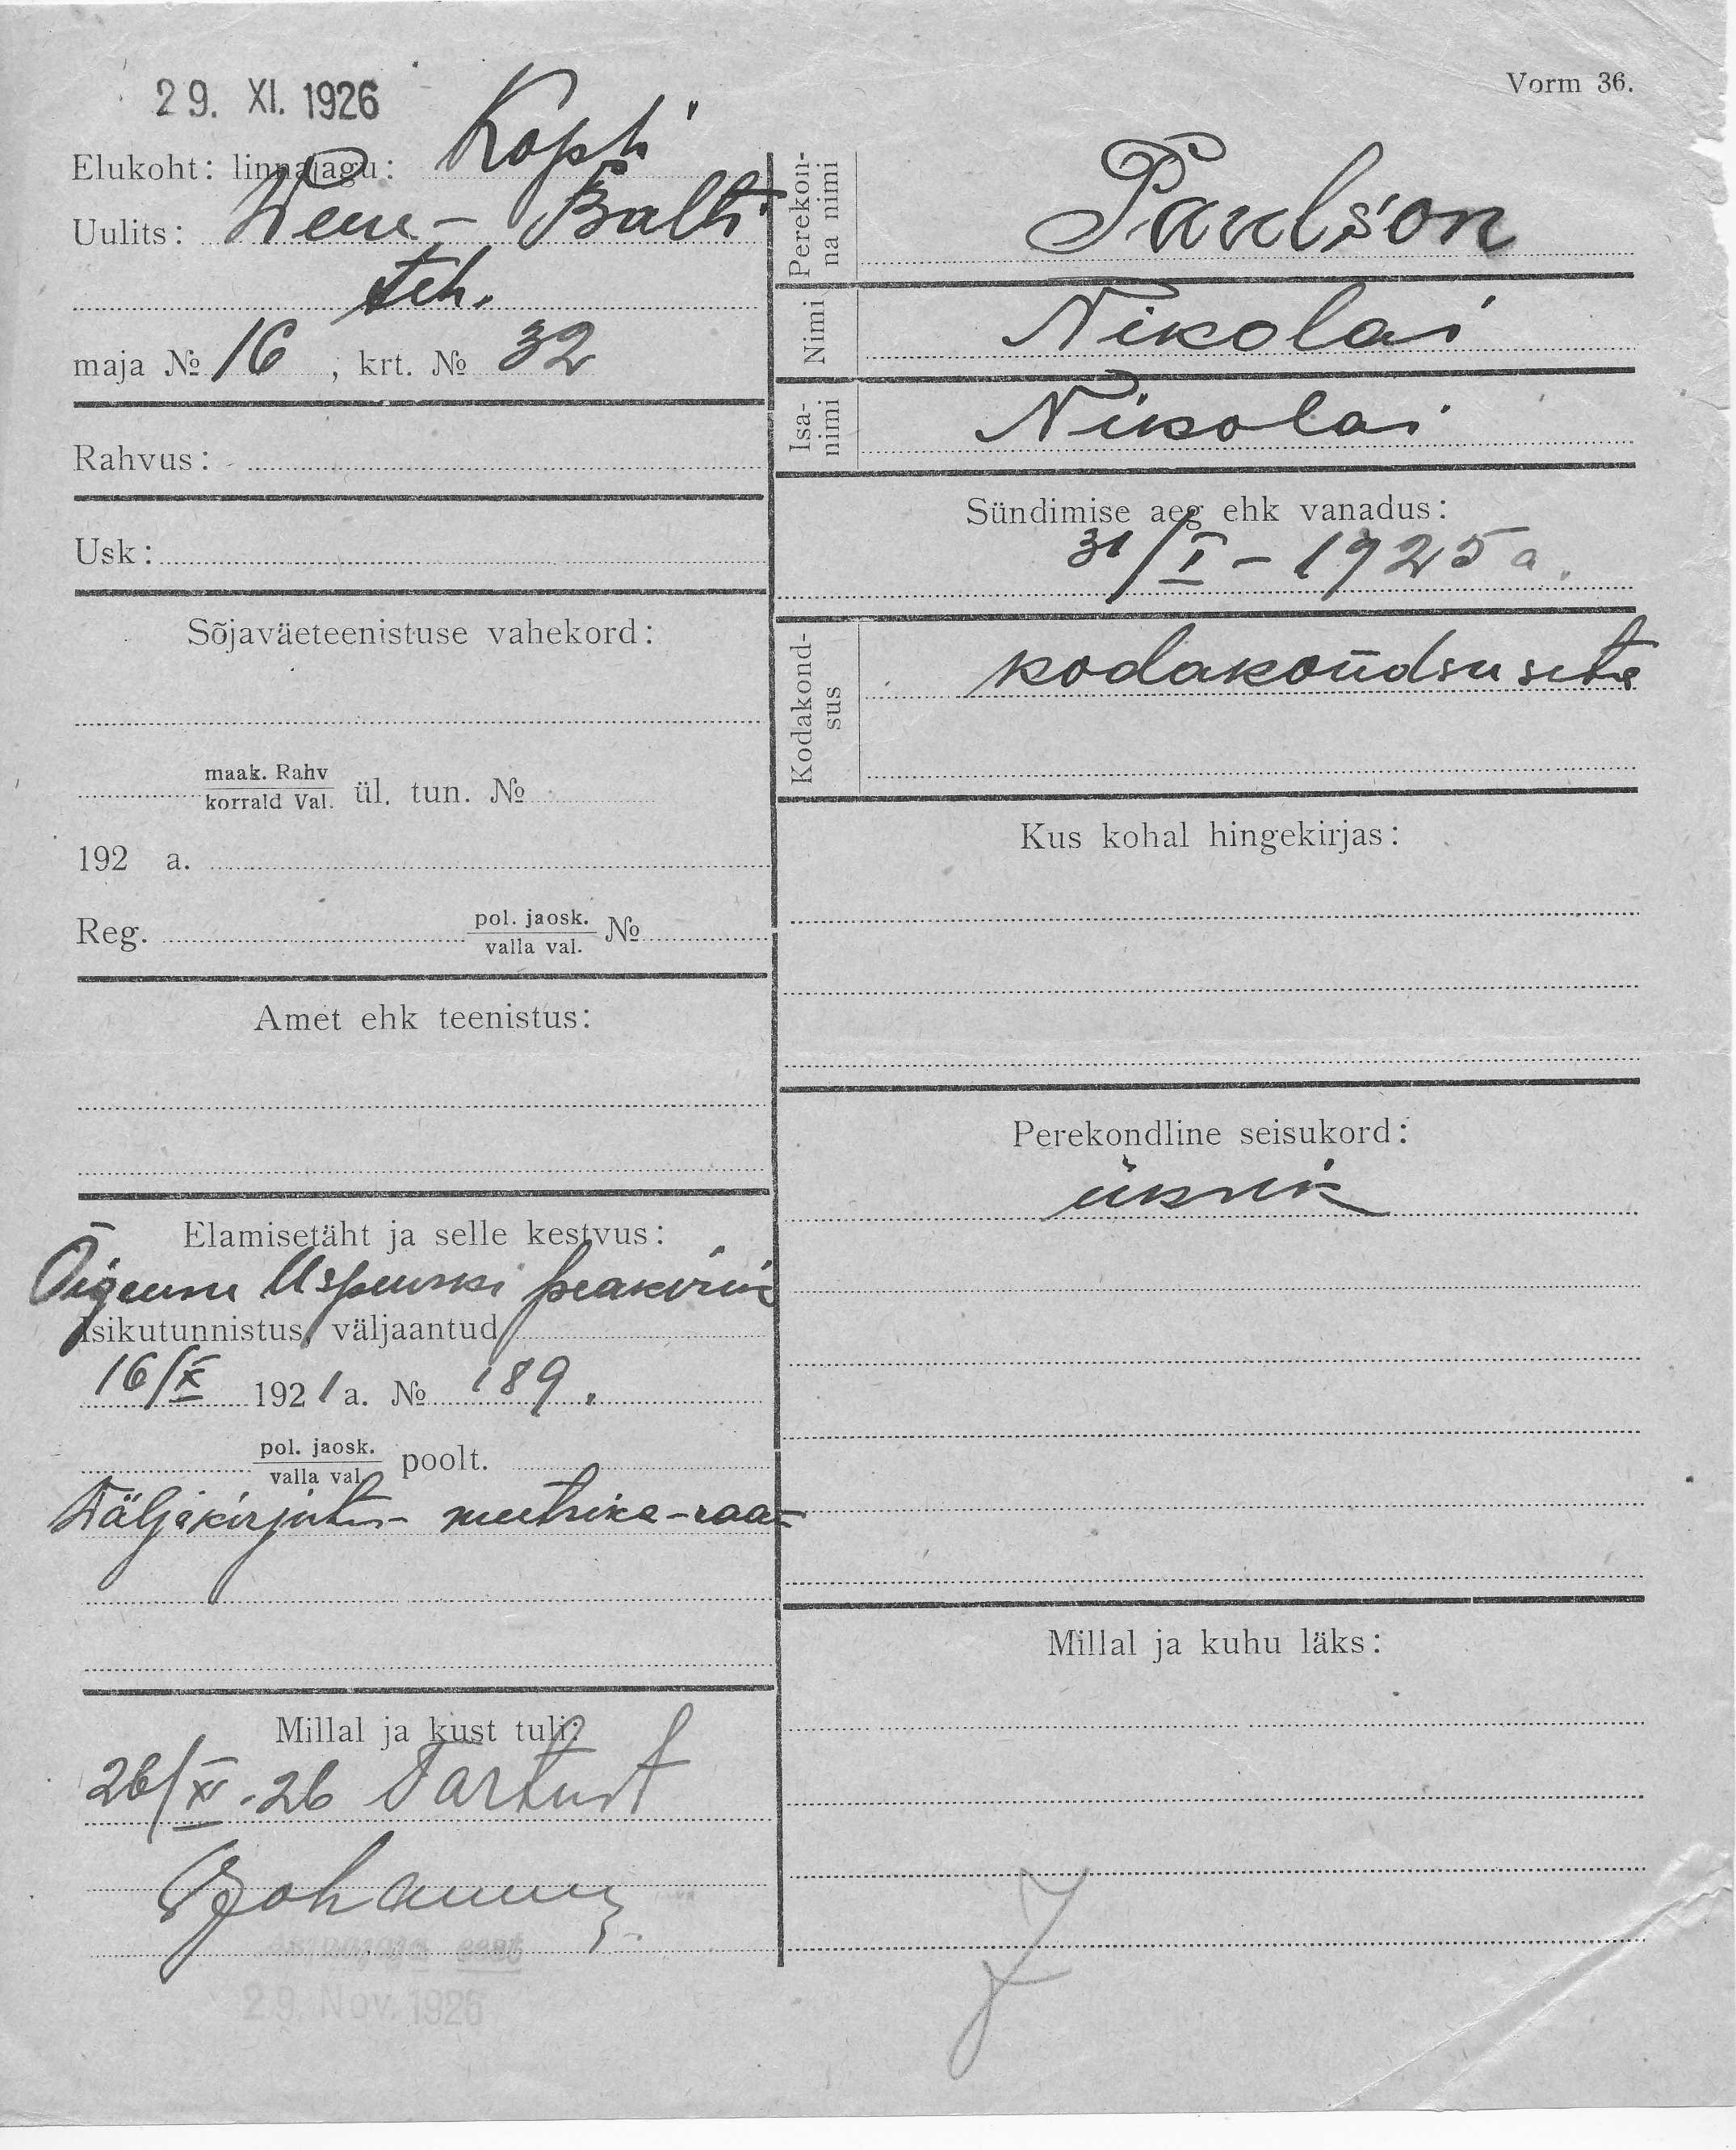 29. XI. 1926
Vorm 36.
Elukoht: linnajagu: Kopli
Uulits: Wene- Balti
teh.
maja № 16 , krt. № 32
Rahvus:
Usk:
Sõjaväeteenistuse vahekord:
maak. Rahv
korrald Val. ül. tun. №
192 a.
Reg. pol. jaosk.
valla val. №
Amet ehk teenistus:
Elamisetäht ja selle kestvus:
Õigeusu Uspenski peakirik
Isikutunnistus, väljaantud
16/X 1921 a. № 189.
pol. jaosk.
valla val. poolt.
Wäljakirjutus meetrika-raa=
Millal ja kust tuli:
26/XI.26 Tartust
29. Nov. 1926
Perekon-
na nimi
Paulson
Nimi
Nikolai
Isa-
nimi
Nikolai
Sündimise aeg ehk vanadus:
31/I - 1925 a.
Kodakond-
sus
kodakondsuseta
Kus kohal hingekirjas:
Perekondline seisukord:
üksik
Millal ja kuhu läks: